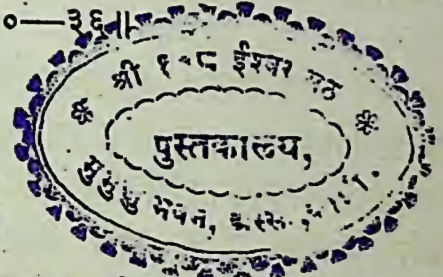 ०—३६॥
श्री १०८ ईश्वर मठ
पुस्तकालय,
मुमुक्षु भवन,